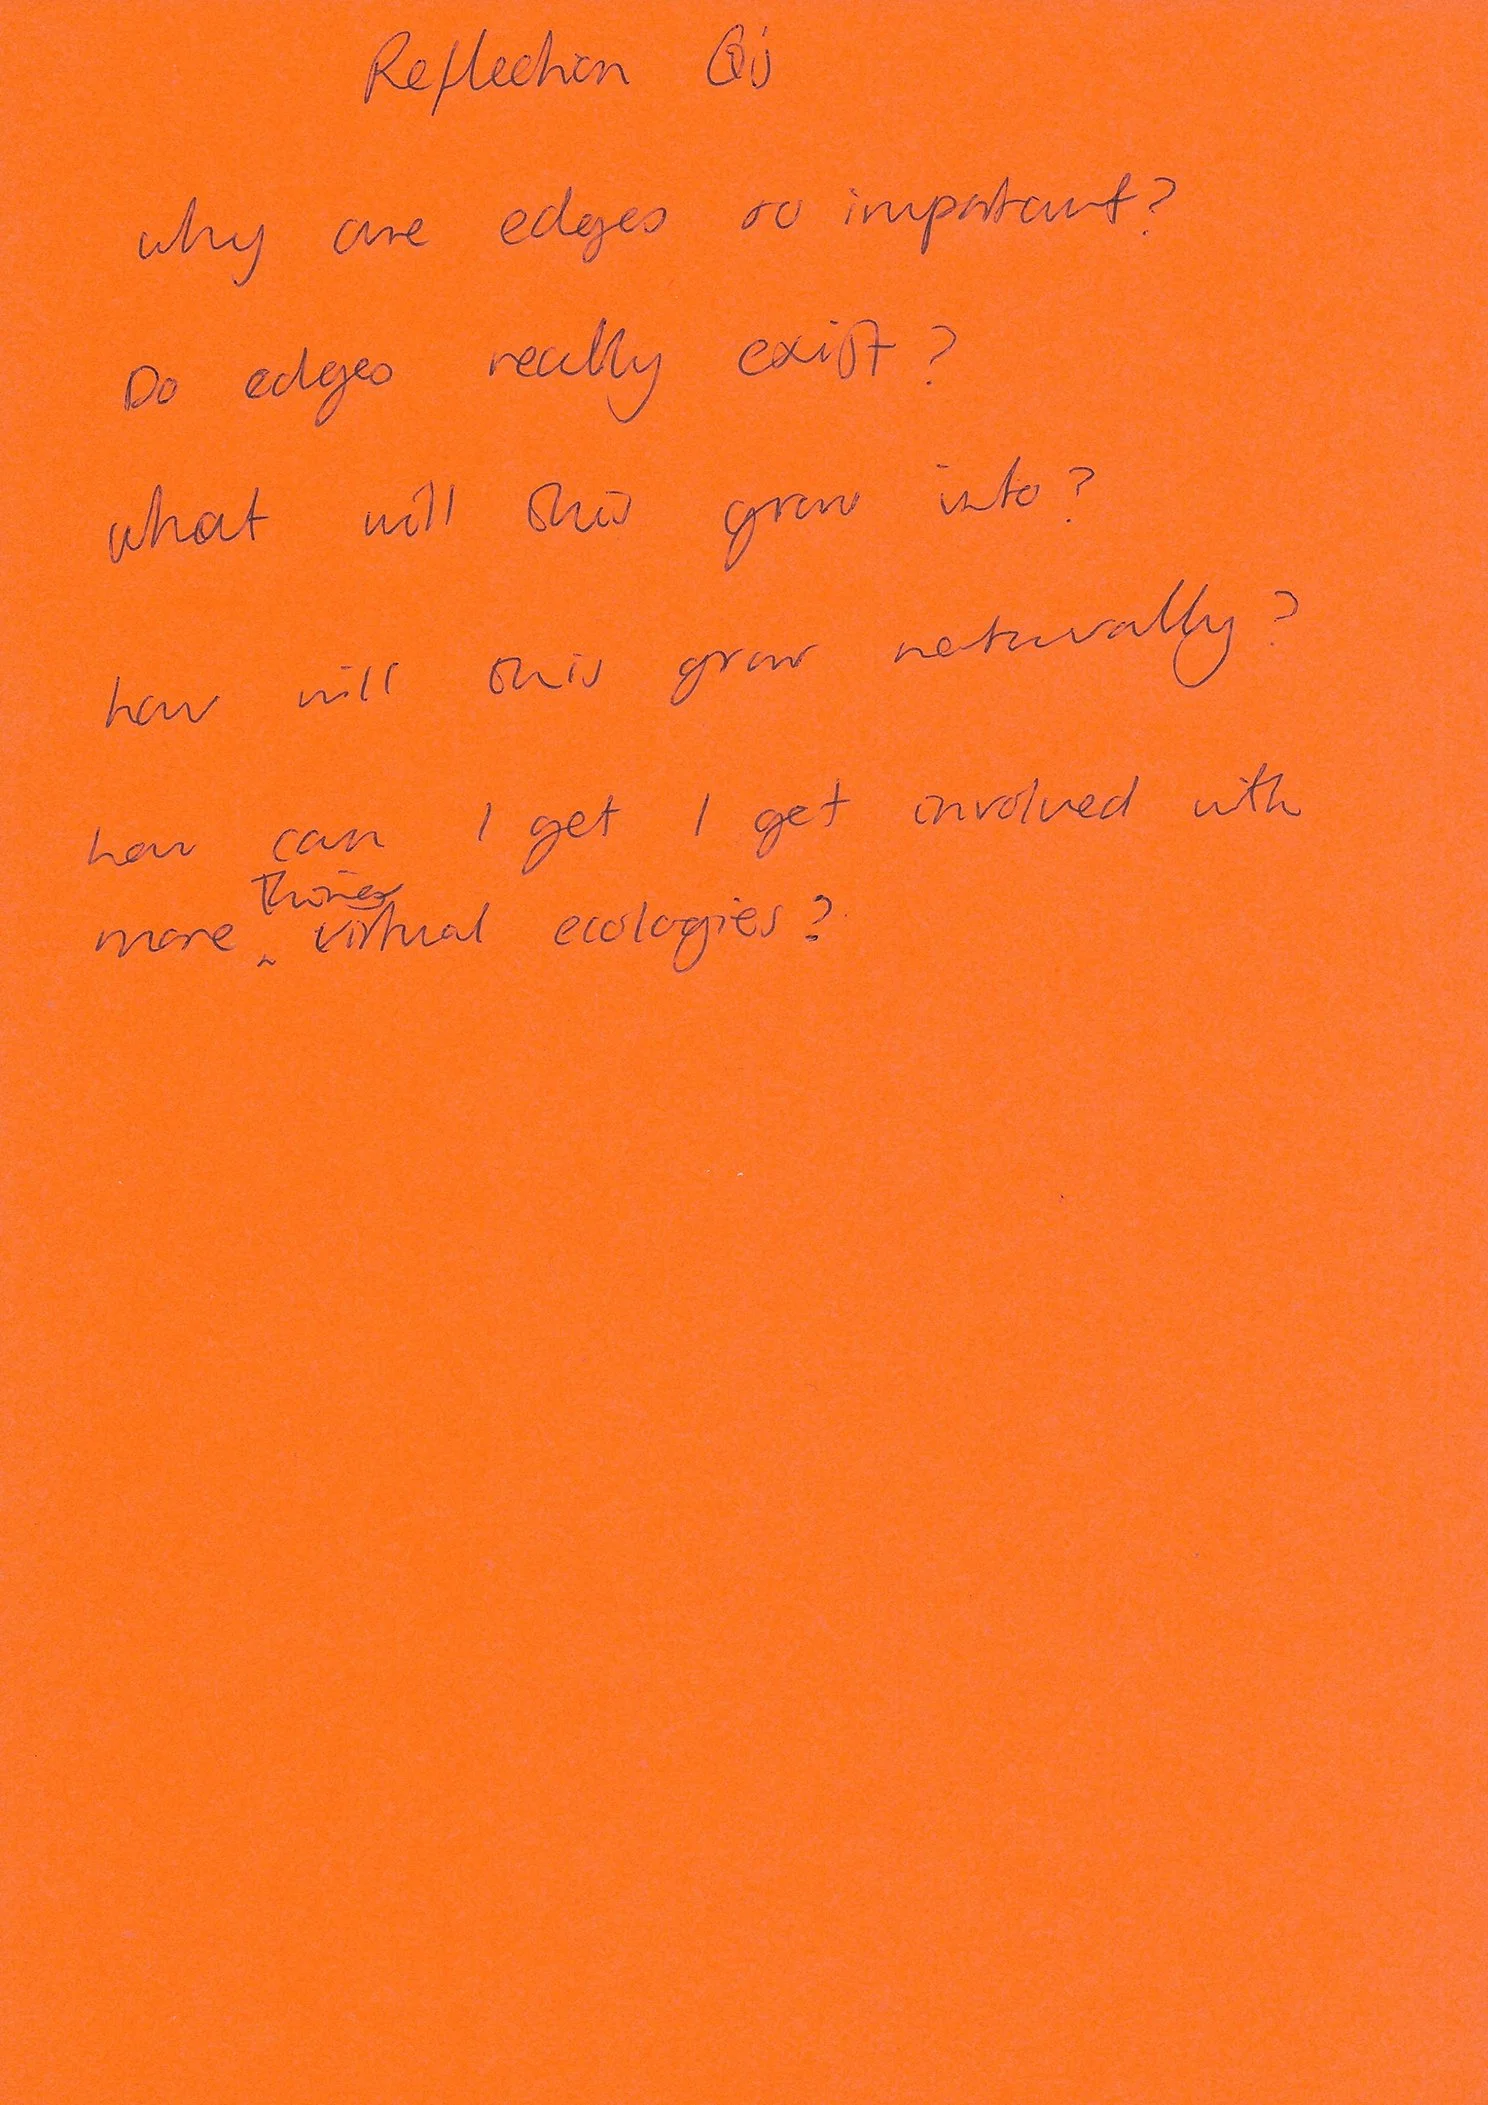 Reflection Qs
why are edges so important?
Do edges really exist?
what will this grow into?
how will this grow naturally?
how can I get I get involved with
more virtual ecologies?